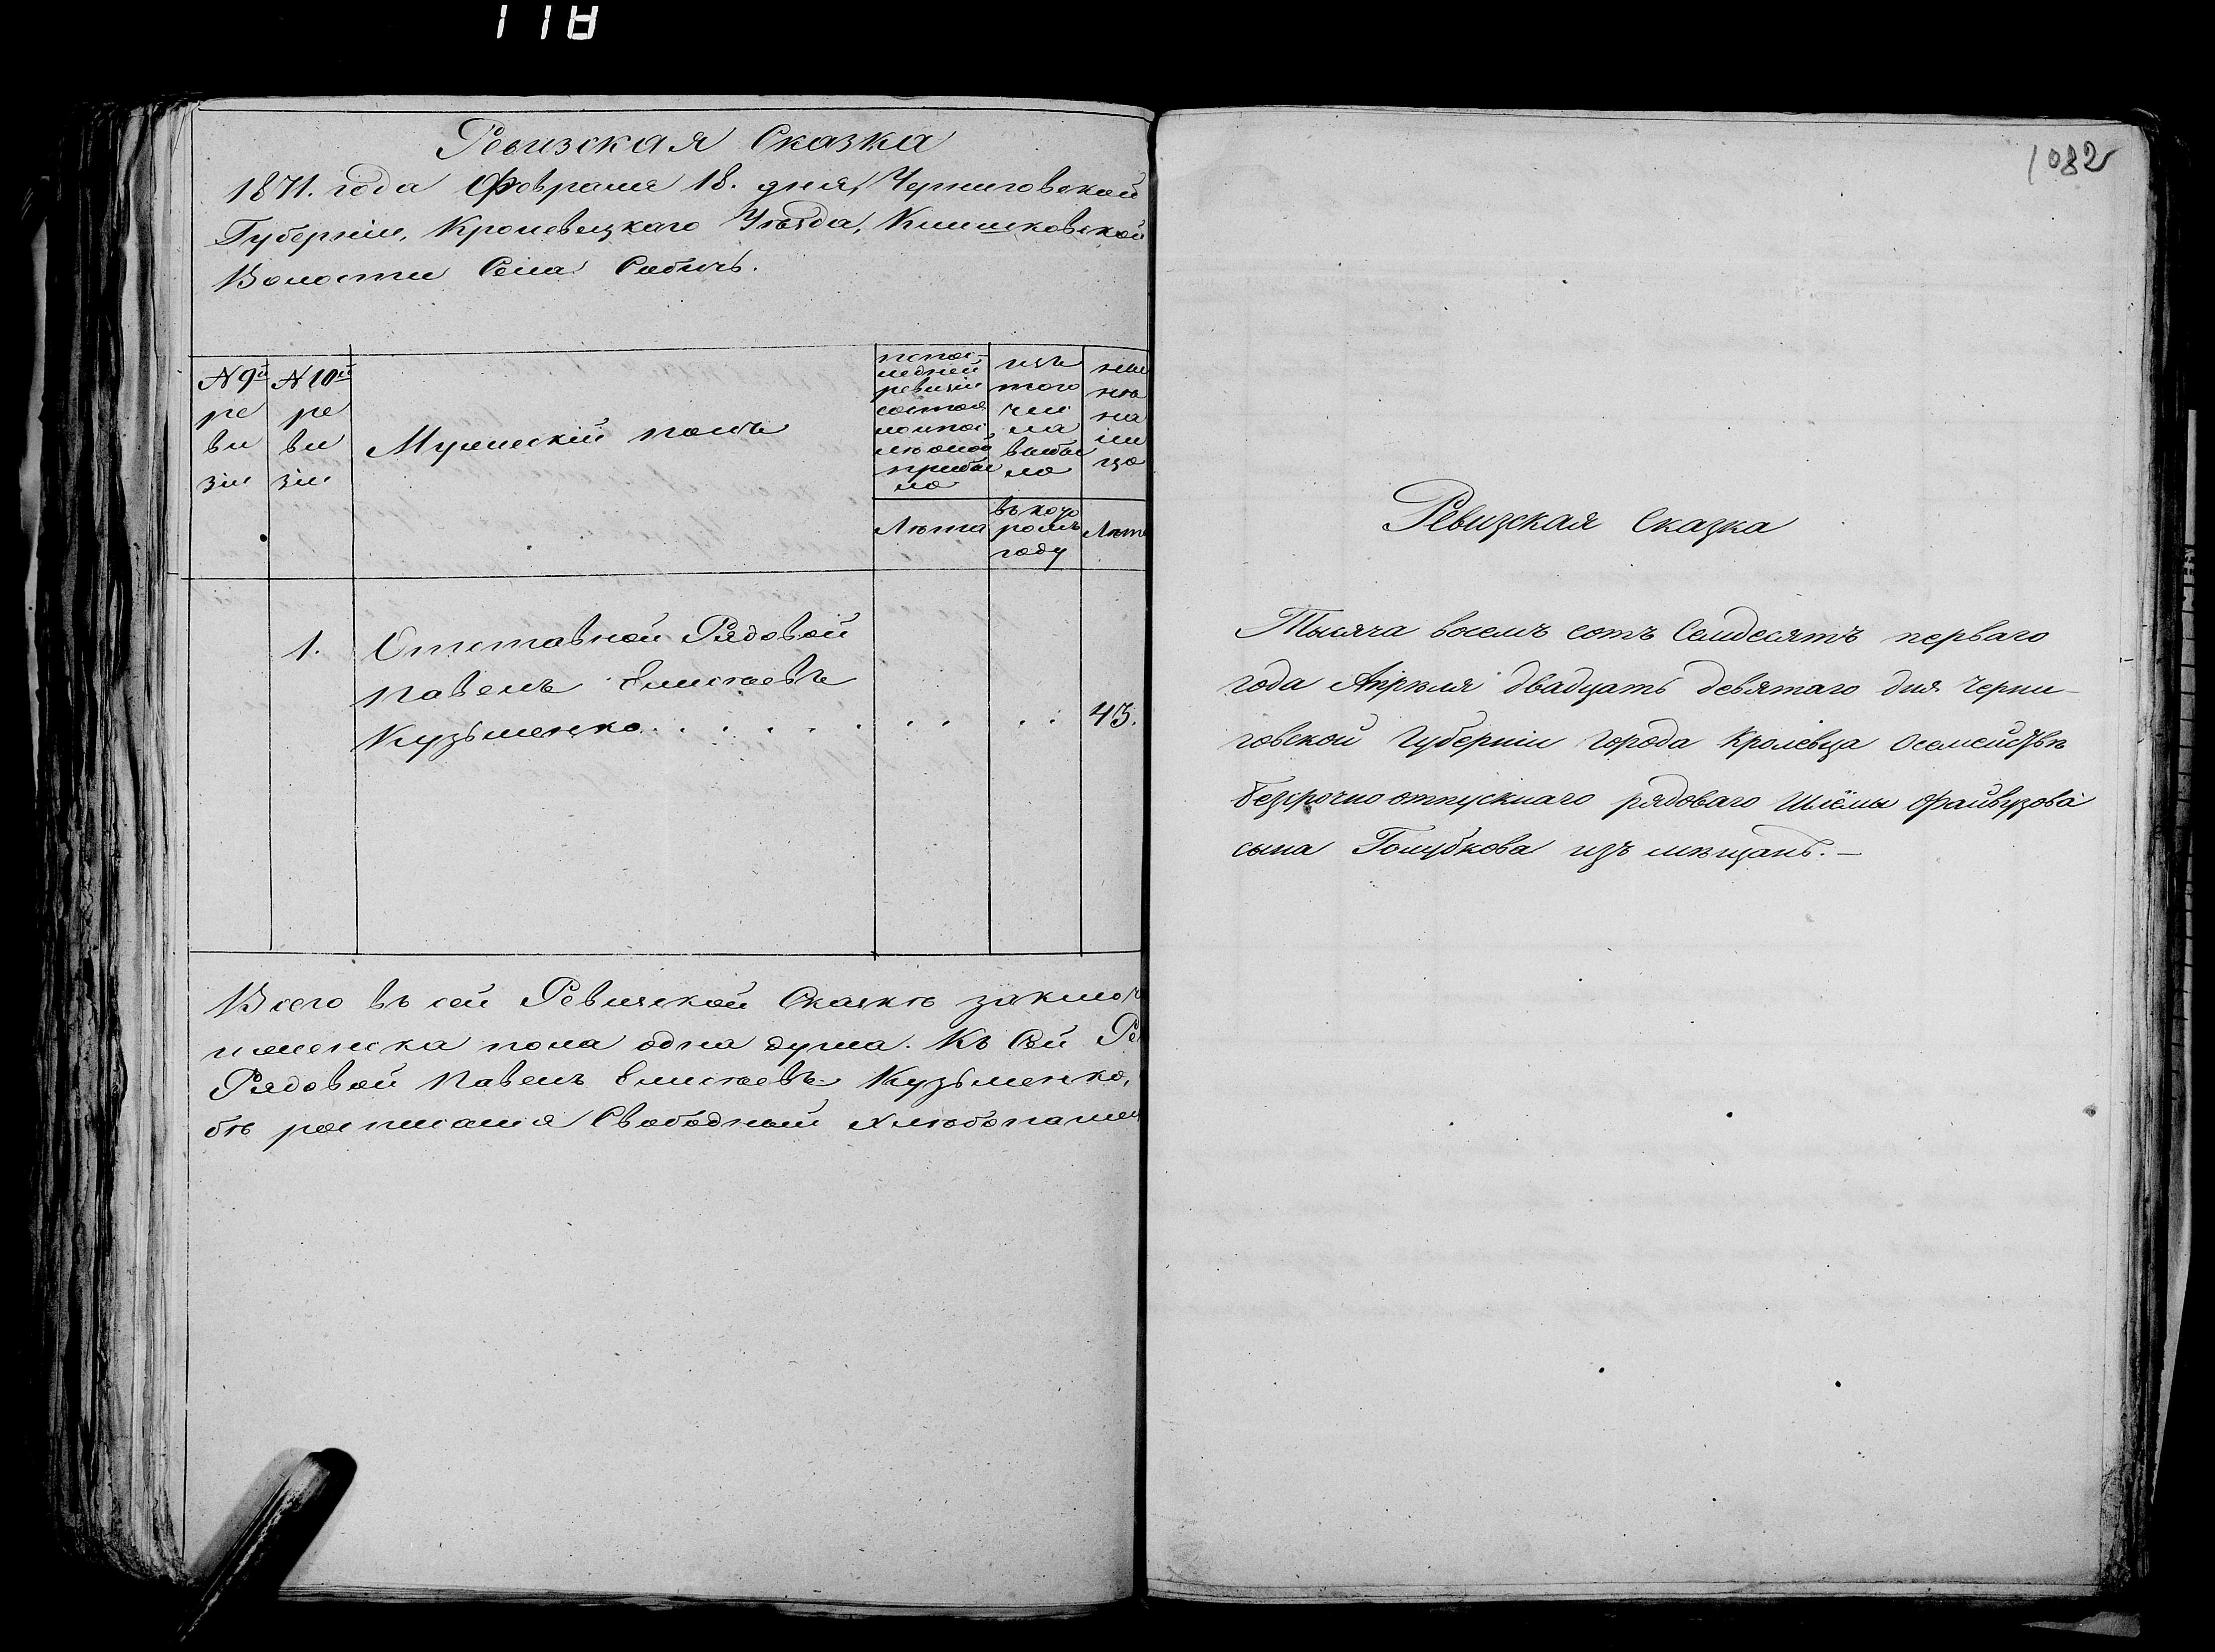 118
Ревизская Сказка
1871. года Февраля 18. дня, Черниговской
Губерніи, Кролевецкаго Уѣзда, Клишковской
Волости Села Собичь.
№ 9й ре ви зіи
№ 10й ре ви зіи
Мужескій полъ
попос-
ледней
ревизіи
состоя
ло и пос
лѣ оной
прибы
ло
изъ
того
чис
ла
выбы
ло
ны
нѣ
на
ли
цо
Лѣта
въ кото
ромъ
году
Лѣта
1.
Отставной Рядовой
Павелъ Елисѣевъ
Кузьменко . . . . . . . . . . . 43.
Всего въ сей Ревизской Сказкѣ заключ
женска пола одна душа. Къ Сей Ре
Рядовой Павелъ Елисѣевъ Кузьменко,
бѣ росписался Свободный хлѣбопашец
1082
Ревизская Сказка
Тысяча восемъ сотъ Семдесятъ перваго
года Апрѣля двадцать девятаго дня Черни-
говской Губерніи города Кролевца о семействѣ
безсрочноотпускнаго рядоваго Шлёмы Файвузова
сына Голубкова изъ мѣщанъ. –